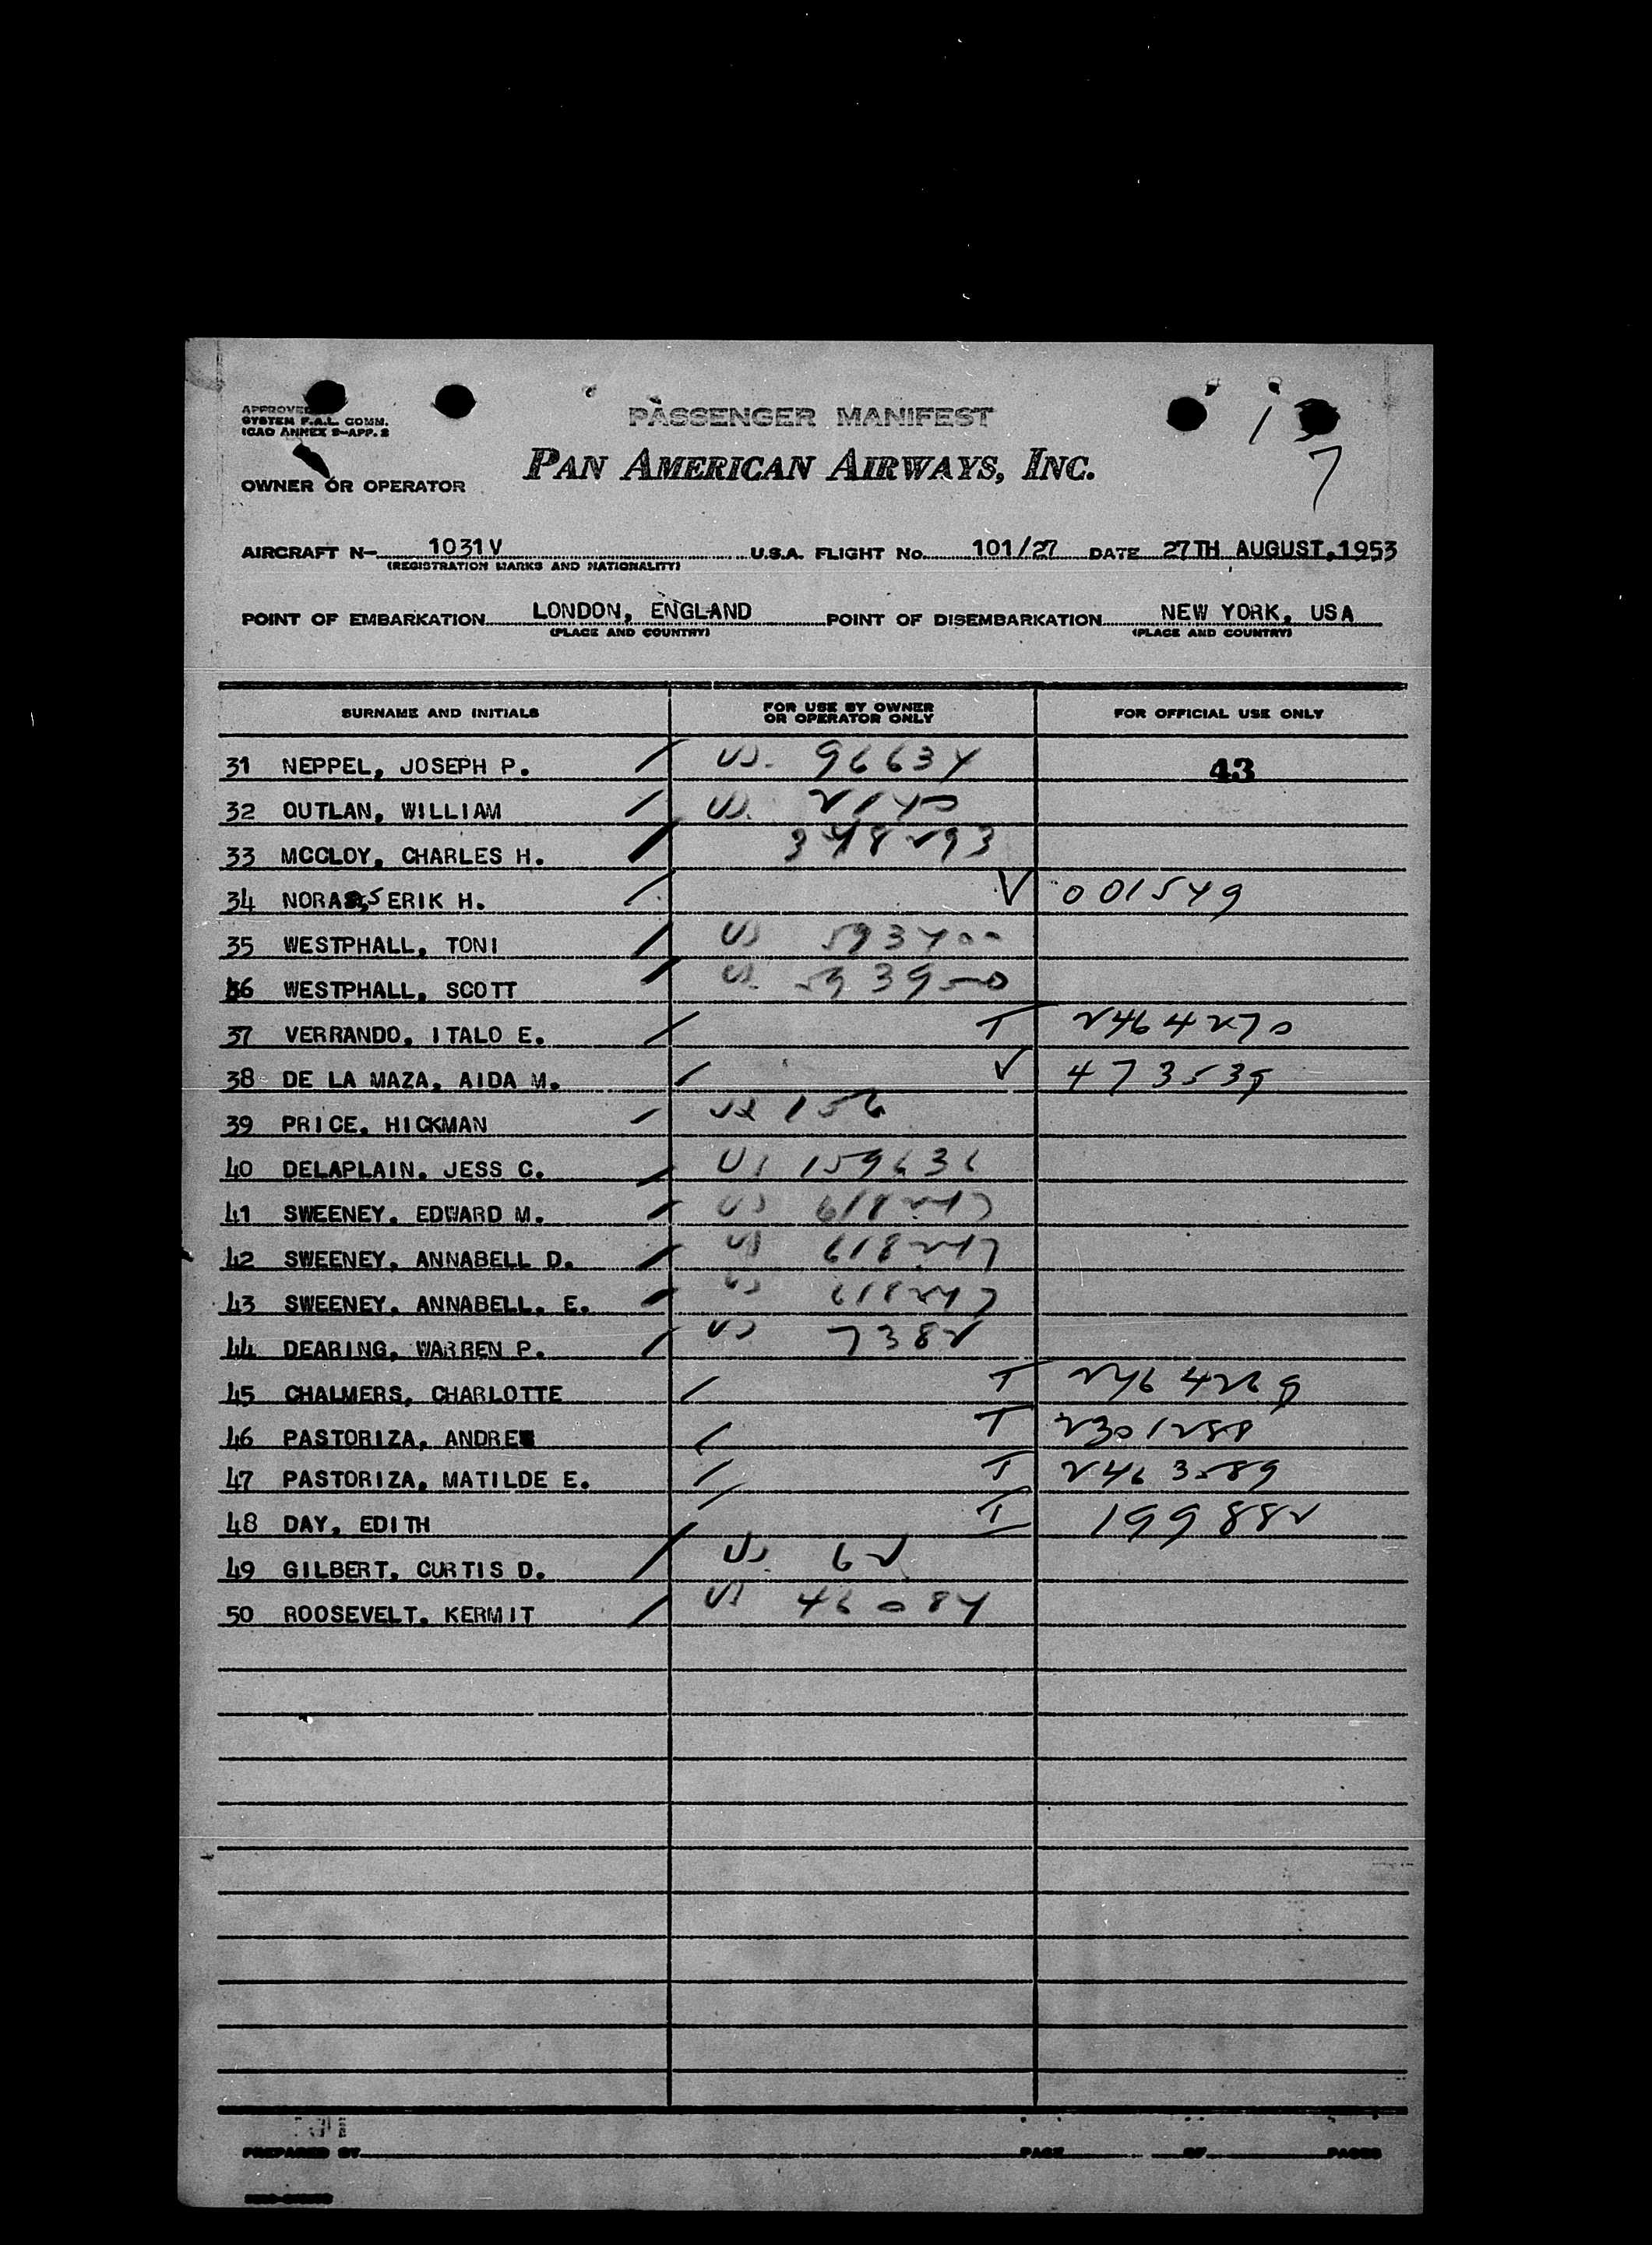 APPROVED
SYSTEM F.A.L. COMM.
ICAO ANNEX 9-APP. 2
PASSENGER MANIFEST
PAN AMERICAN AIRWAYS, INC.
OWNER OR OPERATOR
1
7
AIRCRAFT N- 1031V U.S.A. FLIGHT No. 101/27 DATE 27TH AUGUST, 1953
(REGISTRATION MARKS AND NATIONALITY)
POINT OF EMBARKATION LONDON, ENGLAND POINT OF DISEMBARKATION NEW YORK, USA
(PLACE AND COUNTRY) (PLACE AND COUNTRY)
SURNAME AND INITIALS FOR USE BY OWNER OR OPERATOR ONLY FOR OFFICIAL USE ONLY
31 NEPPEL, JOSEPH P. / US. 96634 43
32 OUTLAN, WILLIAM / US. 2140
33 MCCLOY, CHARLES H. / 348293
34 NORA ERIK H. / V 001549
35 WESTPHALL, TONI / US 593400
36 WESTPHALL, SCOTT / US. 593950
37 VERRANDO, ITALO E. / T 2464270
38 DE LA MAZA, AIDA M. / V 473539
39 PRICE, HICKMAN / US 156
40 DELAPLAIN, JESS C. / US 159636
41 SWEENEY, EDWARD M. / US 618247
42 SWEENEY, ANNABELL D. / US 618247
43 SWEENEY, ANNABELL. E. / US 618247
44 DEARING, WARREN P. / US 7382
45 CHALMERS, CHARLOTTE / T 2464269
46 PASTORIZA, ANDRE / T 2301288
47 PASTORIZA, MATILDE E. / T 2463589
48 DAY, EDITH / T 199882
49 GILBERT, CURTIS D. / US. 62
50 ROOSEVELT, KERMIT / US 46084
PREPARED BY PAGE OF PAGES